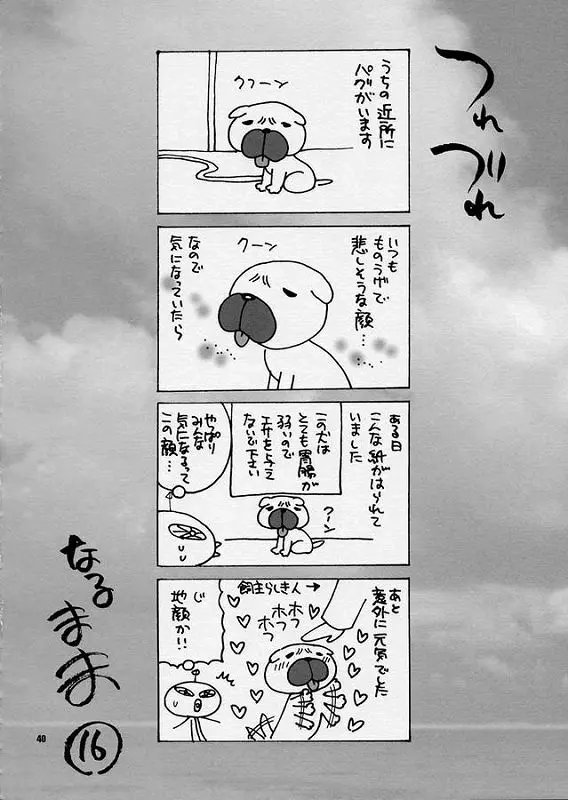 つれづれ
うちの近所に
パグがいます
クフーン
いつも
ものうげで
悲しそうな顔…
クーン
なので
気になっていたら
ある日
こんな紙がはられて
いました
この犬は
とても胃腸が
弱いので
エサを与え
ないで下さい
クーン
やっぱり
みんな
気になるって
この顔…
あと
意外に元気でした
飼主らしき人→
ホフ
ホフ
ホフ
じ
地顔か!!
なるまま
16
40